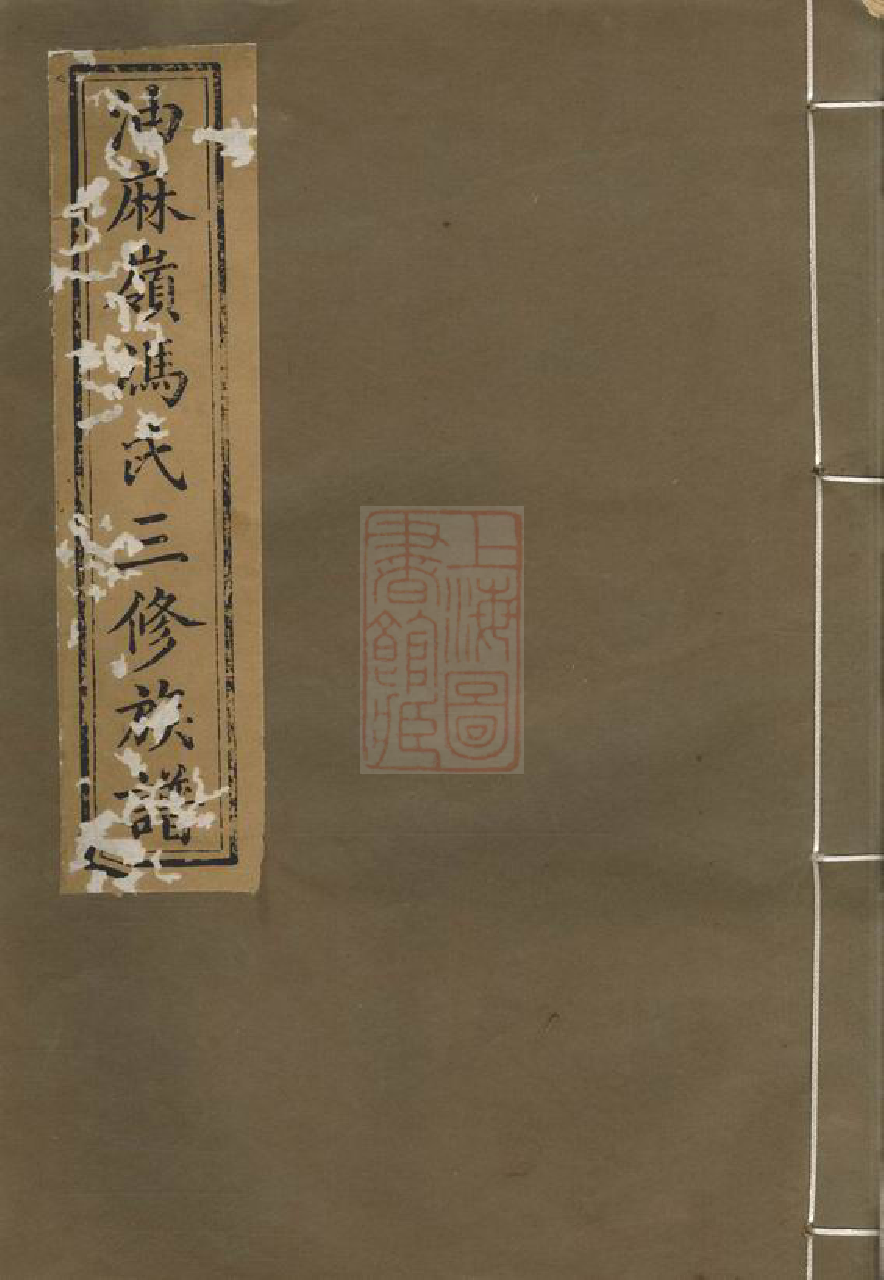 油麻嶺馮氏三修族譜
上海圖
書館藏